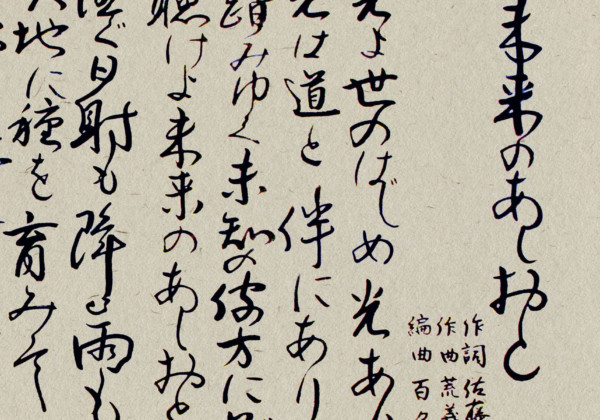 未来のあしおと
作詞 佐藤
作曲 荒
編曲 百
光よ世のはじめ光あ
光は道と伴にあり
踏みゆく未知の彼方に
聴けよ未来のあしおと
ぐ日射も降る雨も
大地に種を育みて